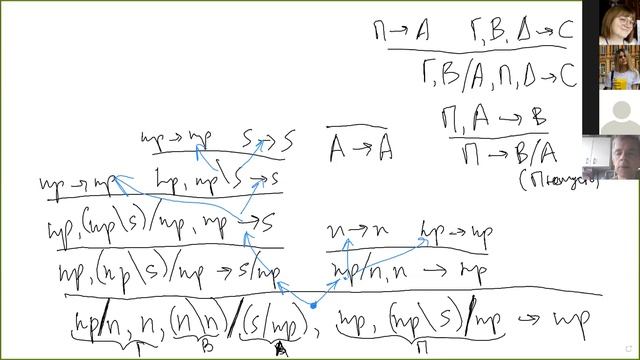 Π → A   Γ, B, Δ → C
Γ, B/A, Π, Δ → C
Π, A → B
Π → B/A
A → A
np → np   s → s
np → np   np, np\s → s
np, (np\s)/np, np → s
n → n   np → np
np, (np\s)/np → s/np   np/n, n → np
np/n, n, (n\n)/(s/np), np, (np\s)/np → np
Γ   B   A   Π